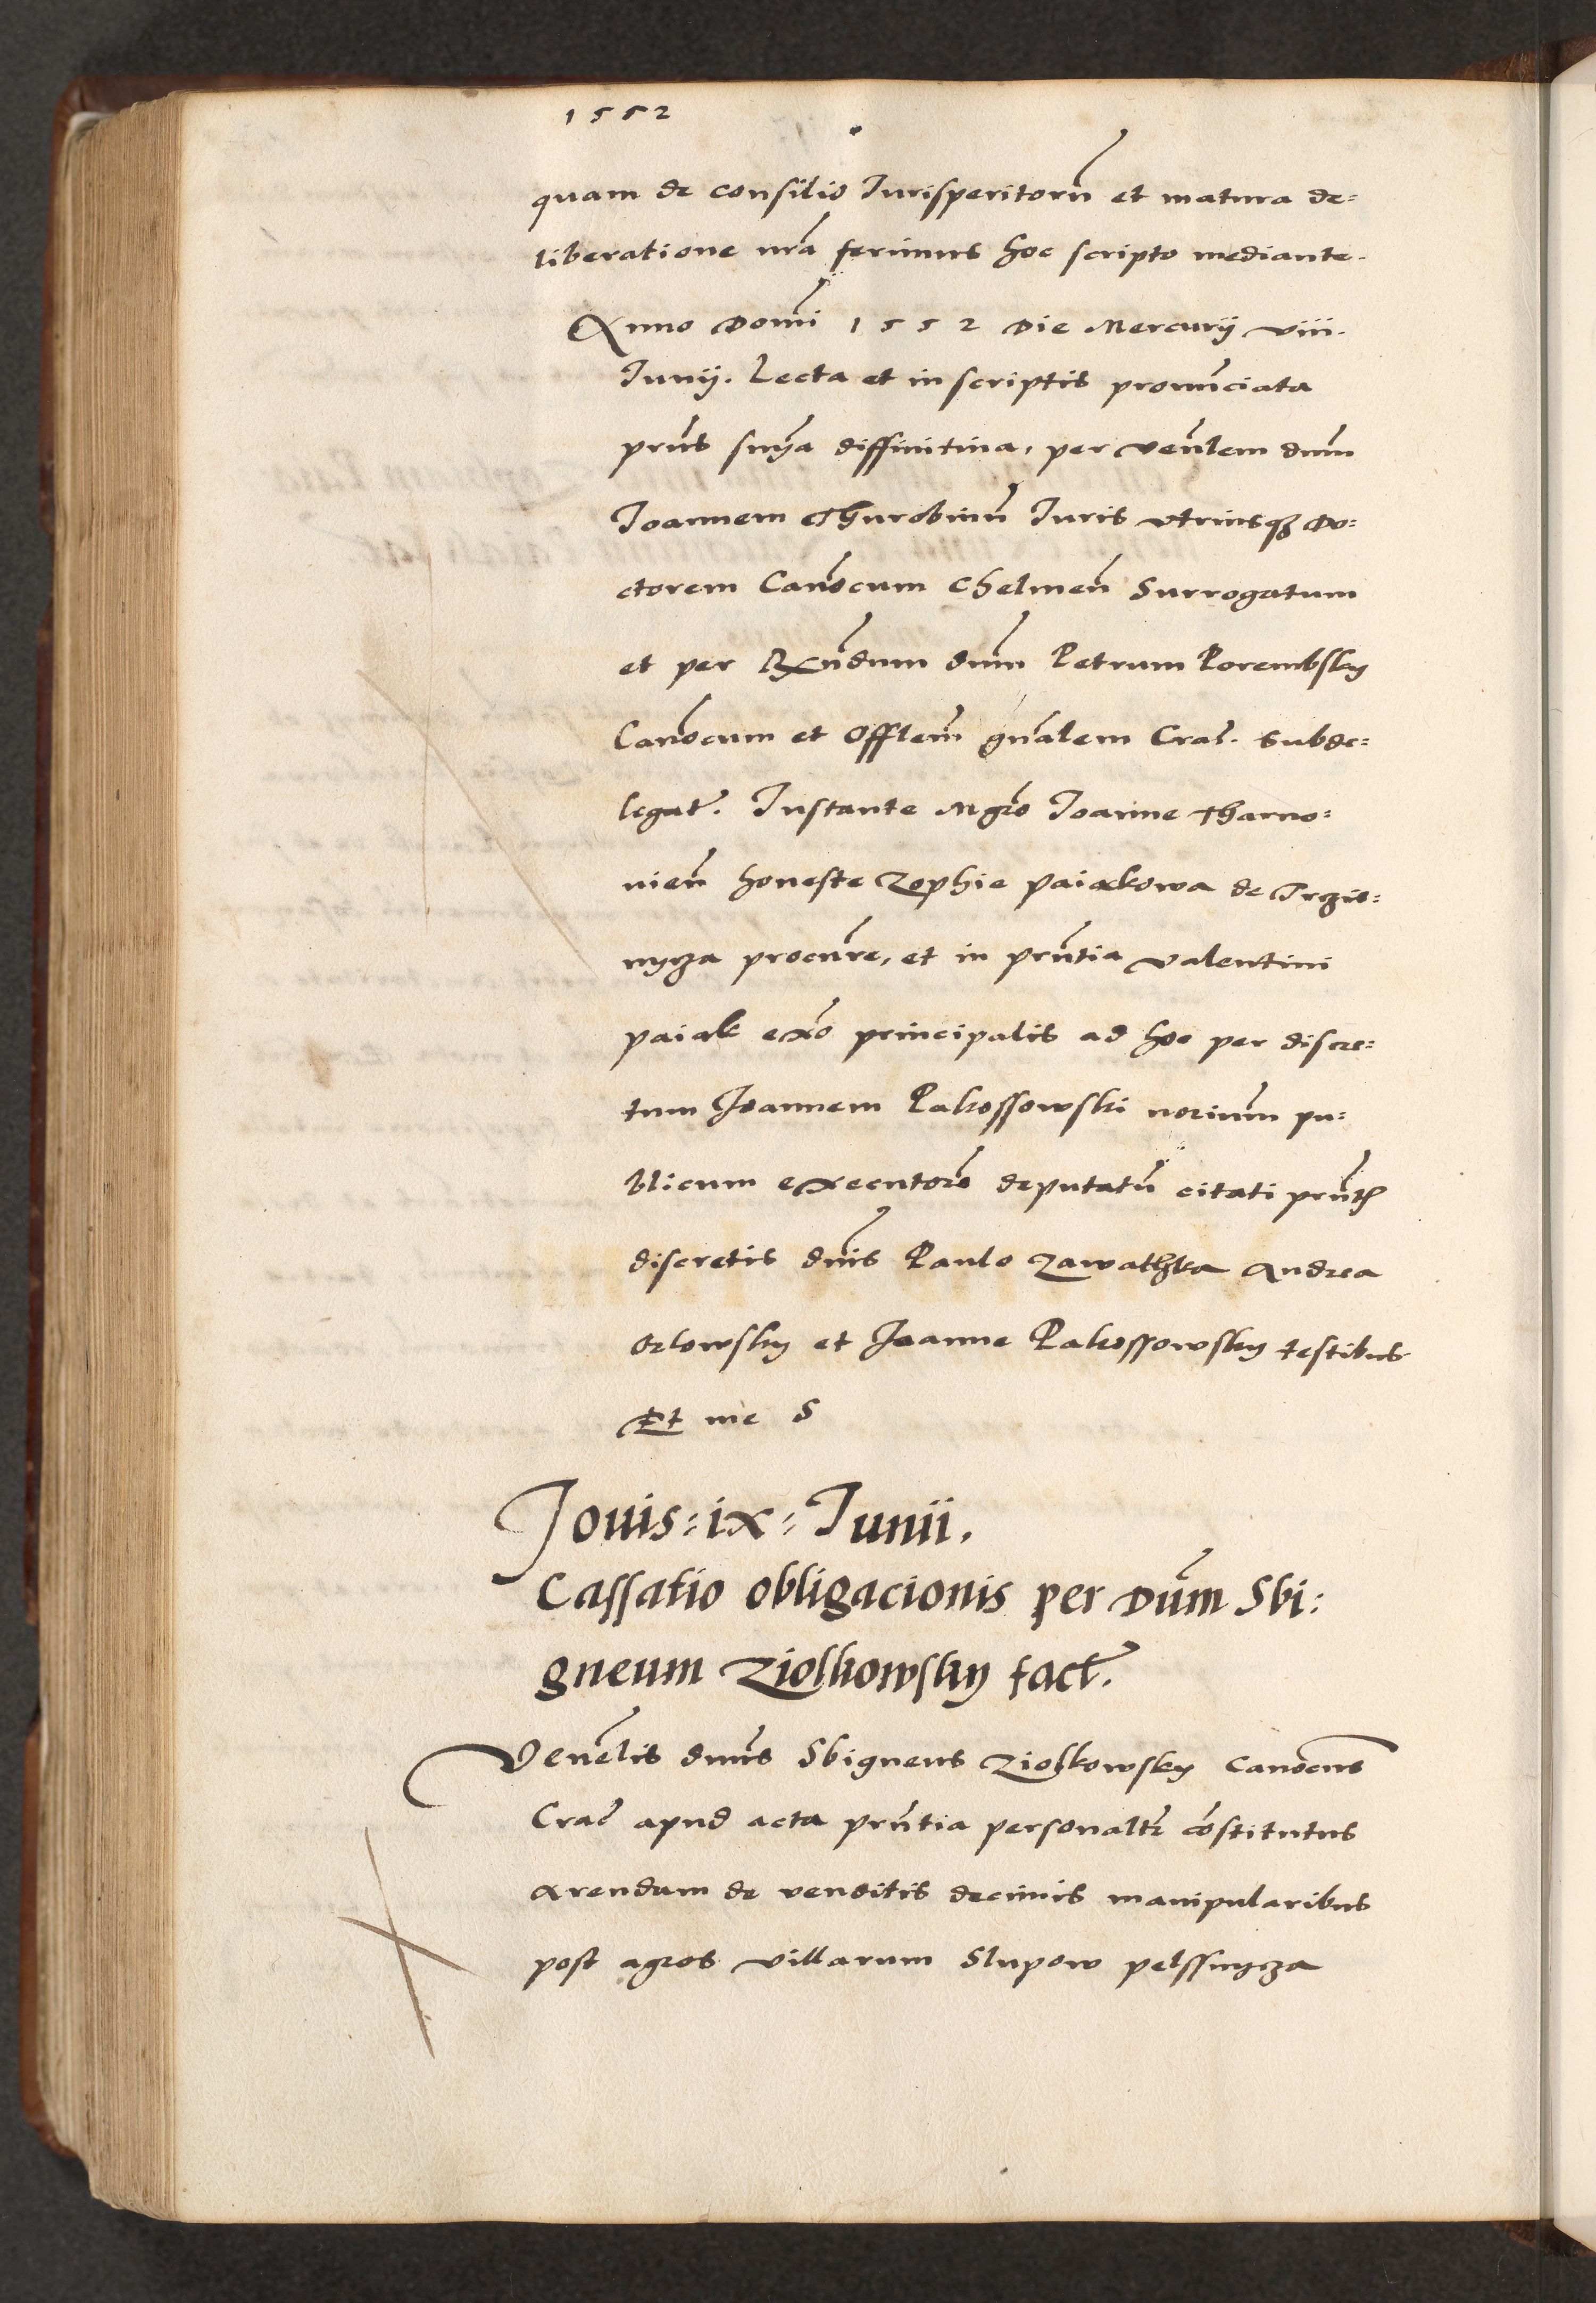 1552
quam de consilio Jurisperitorū et matura de=
liberatione nrā ferimus hoc scripto mediante.
Anno Domī 1552 Die Mercurij viii.
Junij. Lecta et in scriptis pronūciata
prn̄s snīa diffinitiua, per Ven̄lem dn̄m
Joannem Thurobinū Juris vtriusqȝ Do=
ctorem Canōcum Chelmeñ Surrogatum
et per Rn̄dum dn̄m Petrum Porembsky
Canōcum et Offlem̄ gn̄alem Crac̄. Subde=
legat̄. Instante Mgrō Joanne Tharno=
uien̄ honeste Zophie paiakowa de Trzie=
nycza procūre, et in prn̄tia Valentini
paiak exō principalis ad hoc per discre=
tum Joannem Pakossowski noriūm pu=
blicum executorē deputatū citati prn̄tꝭ
discretis dn̄is Paulo Zawathka Andrea
Orlowsky et Joanne Pakossowsky testibus
Et me S
Jouis=ix=Junii.
Cassatio obligacionis per Dn̄m Sbi:
gneum Ziolkowsky fact̄.
Ven̄elis dn̄us Sbigneus Ziolkowsky Canōcus
Crac̄ apud acta prn̄tia personaltr̄ cōstitutus
arendam de venditis decimis manipularibus
post agros villarum Slupow pelssnycza